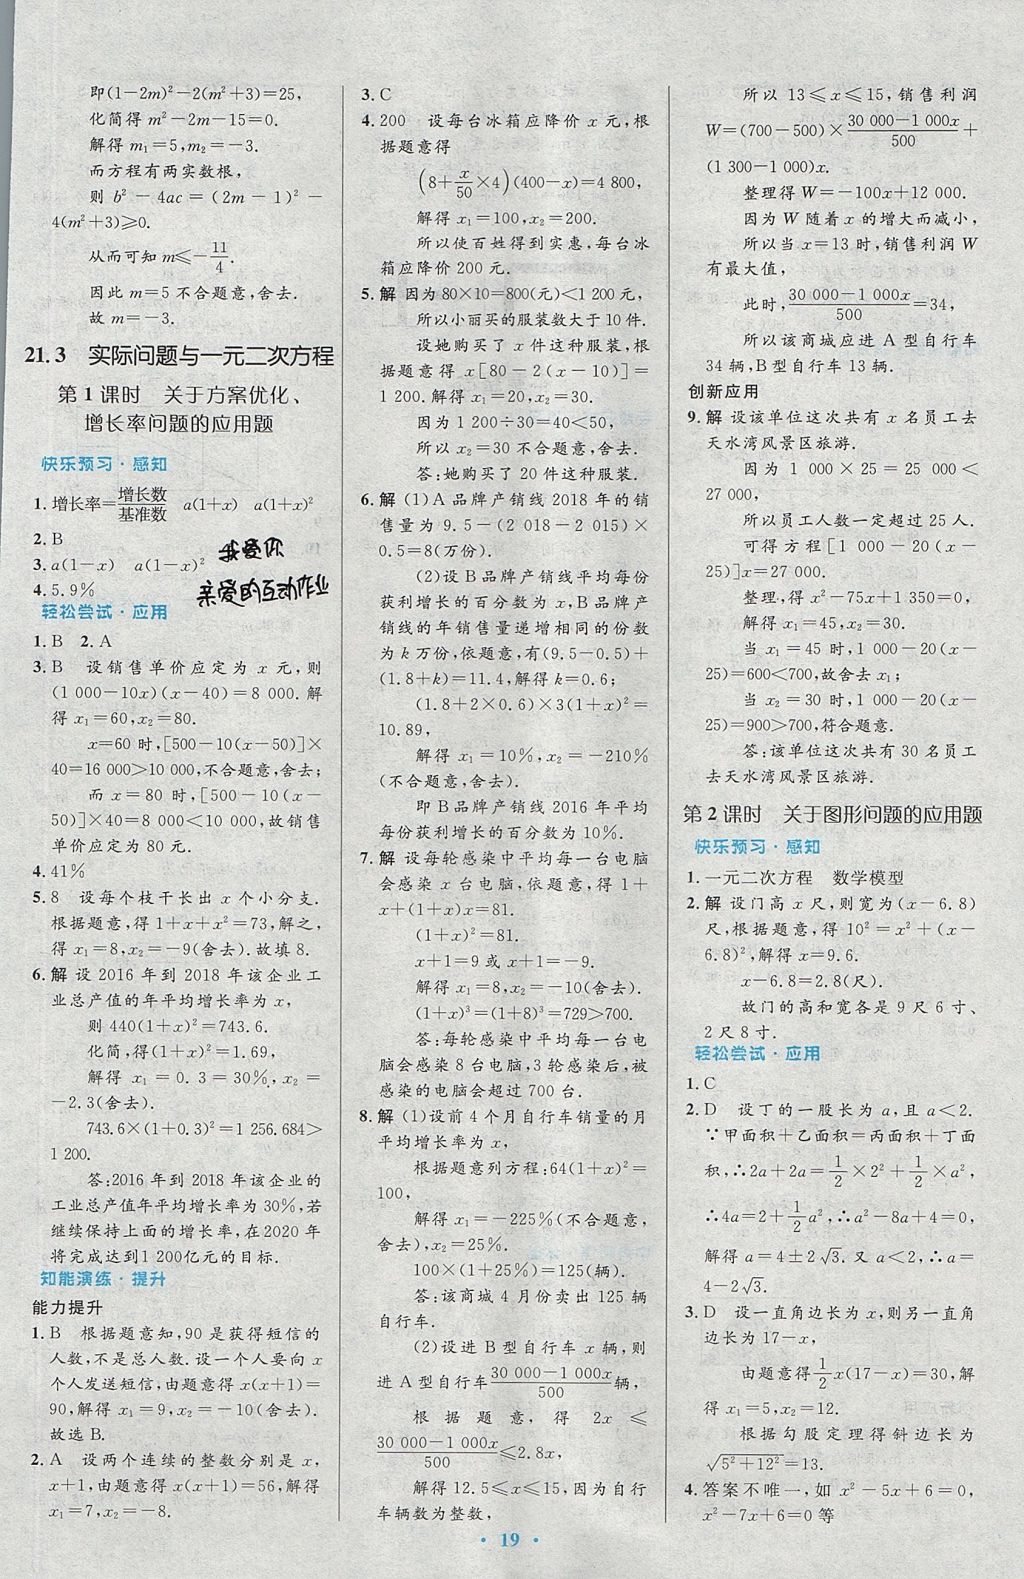 即(1-2m)²-2(m²+3)=25,
化简得 m²-2m-15=0.
解得 m₁=5,m₂=-3.
而方程有两实数根,
则 b²-4ac=(2m-1)²-
4(m²+3)≥0.
从而可知 m≤-11/4.
因此 m=5 不合题意,舍去.
故 m=-3.
21.3 实际问题与一元二次方程
第1课时 关于方案优化、
增长率问题的应用题
快乐预习·感知
1.增长率=增长数/基准数 a(1+x) a(1+x)²
2.B
3.a(1-x) a(1-x)²
4.5.9%
我爱你
亲爱的互动作业
轻松尝试·应用
1.B 2.A
3.B 设销售单价应定为 x 元,则
(1 000-10x)(x-40)=8 000.解
得 x₁=60,x₂=80.
x=60 时,[500-10(x-50)]×
40=16 000>10 000,不合题意,舍去;
而 x=80 时,[500-10(x-
50)]×40=8 000<10 000,故销售
单价应定为 80 元.
4.41%
5.8 设每个枝干长出 x 个小分支.
根据题意,得 1+x+x²=73,解之,
得 x₁=8,x₂=-9(舍去).故填 8.
6.解 设 2016 年到 2018 年该企业工
业总产值的年平均增长率为 x,
则 440(1+x)²=743.6.
化简,得(1+x)²=1.69,
解得 x₁=0.3=30%,x₂=
-2.3(舍去).
743.6×(1+0.3)²=1 256.684>
1 200.
答:2016 年到 2018 年该企业的
工业总产值年平均增长率为 30%,若
继续保持上面的增长率,在 2020 年
将完成达到1 200亿元的目标.
知能演练·提升
能力提升
1.B 根据题意知,90 是获得短信的
人数,不是总人数.设一个人要向 x
个人发送短信,由题意得 x(x+1)=
90,解得 x₁=9,x₂=-10(舍去).
故选 B.
2.A 设两个连续的整数分别是 x,
x+1,由题意得 x(x+1)=56,解得
x₁=7,x₂=-8.
3.C
4.200 设每台冰箱应降价 x 元,根
据题意得
(8+x/50×4)(400-x)=4 800,
解得 x₁=100,x₂=200.
所以使百姓得到实惠,每台冰
箱应降价 200 元.
5.解 因为 80×10=800(元)<1 200 元,
所以小丽买的服装数大于 10 件.
设她购买了 x 件这种服装,根
据题意得 x[80-2(x-10)]=
1 200.解得 x₁=20,x₂=30.
因为 1 200÷30=40<50,
所以 x₂=30 不合题意,舍去.
答:她购买了 20 件这种服装.
6.解 (1)A 品牌产销线 2018 年的销
售量为 9.5-(2 018-2 015)×
0.5=8(万份).
(2)设 B 品牌产销线平均每份
获利增长的百分数为 x,B 品牌产
销线的年销售量递增相同的份数
为 k 万份,依题意,有(9.5-0.5)+
(1.8+k)=11.4,解得 k=0.6;
(1.8+2×0.6)×3(1+x)²=
10.89,
解得 x₁=10%,x₂=-210%
(不合题意,舍去).
即 B 品牌产销线 2016 年平均
每份获利增长的百分数为 10%.
7.解 设每轮感染中平均每一台电脑
会感染 x 台电脑,依题意,得 1+
x+(1+x)x=81.
(1+x)²=81.
x+1=9 或 x+1=-9.
解得 x₁=8,x₂=-10(舍去).
(1+x)³=(1+8)³=729>700.
答:每轮感染中平均每一台电
脑会感染 8 台电脑,3 轮感染后,被
感染的电脑会超过 700 台.
8.解 (1)设前 4 个月自行车销量的月
平均增长率为 x,
根据题意列方程:64(1+x)²=
100,
解得 x₁=-225%(不合题意,
舍去),x₂=25%.
100×(1+25%)=125(辆).
答:该商城 4 月份卖出 125 辆
自行车.
(2)设进 B 型自行车 x 辆,则
进 A 型自行车 (30 000-1 000x)/500 辆,
根据题意,得 2x≤
(30 000-1 000x)/500≤2.8x,
解得 12.5≤x≤15,因为自行
车辆数为整数,
所以 13≤x≤15,销售利润
W=(700-500)×(30 000-1 000x)/500+
(1 300-1 000)x.
整理得 W=-100x+12 000.
因为 W 随着 x 的增大而减小,
所以当 x=13 时,销售利润 W
有最大值,
此时,(30 000-1 000x)/500=34,
所以该商城应进 A 型自行车
34 辆,B型自行车 13 辆.
创新应用
9.解 设该单位这次共有 x 名员工去
天水湾风景区旅游.
因为 1 000×25=25 000<
27 000,
所以员工人数一定超过 25 人.
可得方程[1 000-20(x-
25)]x=27 000.
整理,得 x²-75x+1 350=0,
解得 x₁=45,x₂=30.
当 x₁=45 时,1 000-20(x-
25)=600<700,故舍去 x₁;
当 x₂=30 时,1 000-20(x-
25)=900>700,符合题意.
答:该单位这次共有 30 名员工
去天水湾风景区旅游.
第2课时 关于图形问题的应用题
快乐预习·感知
1.一元二次方程 数学模型
2.解 设门高 x 尺,则宽为(x-6.8)
尺,根据题意,得 10²=x²+(x-
6.8)²,解得 x=9.6.
x-6.8=2.8(尺).
故门的高和宽各是 9 尺 6 寸、
2 尺 8 寸.
轻松尝试·应用
1.C
2.D 设丁的一股长为 a,且 a<2.
∵甲面积+乙面积=丙面积+丁面
积,∴2a+2a=1/2×2²+1/2×a²,
∴4a=2+1/2a²,∴a²-8a+4=0,
解得 a=4±2√3.又 a<2,∴a=
4-2√3.
3.D 设一直角边长为 x,则另一直角
边长为 17-x,
由题意得1/2x(17-x)=30,解
得 x₁=5,x₂=12.
根据勾股定理得斜边长为
√(5²+12²)=13.
4.答案不唯一,如 x²-5x+6=0,
x²-7x+6=0 等
· 19 ·